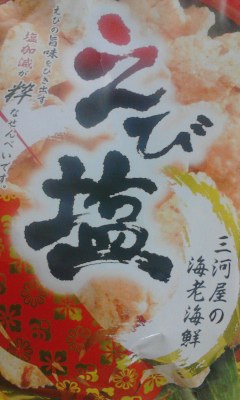 えびの旨味をひき出す
塩加減が粋
なせんべいです。
えび
塩
三河屋の
海老海鮮